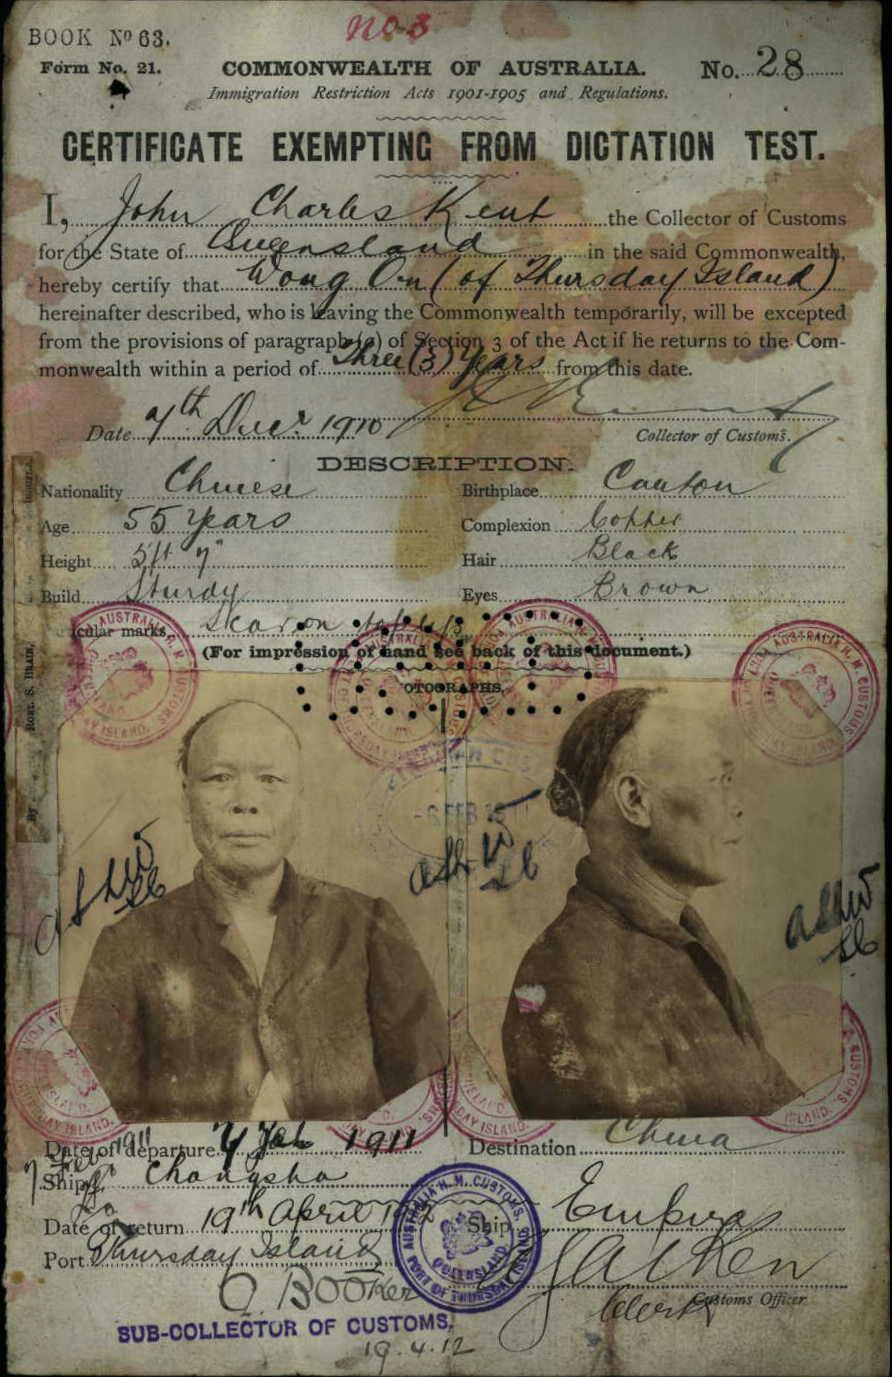 BOOK No 63.
No 3
Form No. 21.
COMMONWEALTH OF AUSTRALIA.
No. 28
Immigration Restriction Acts 1901-1905 and Regulations.
CERTIFICATE EXEMPTING FROM DICTATION TEST.
I, John Charles Kent the Collector of Customs
for the State of Queensland in the said Commonwealth,
hereby certify that Wong On (of Thursday Island)
hereinafter described, who is leaving the Commonwealth temporarily, will be excepted
from the provisions of paragraph (a) of Section 3 of the Act if he returns to the Com-
monwealth within a period of Three (3) Years from this date.
Date 7th Decr 1910
Collector of Customs.
DESCRIPTION.
Nationality Chinese
Birthplace Canton
Age 55 years
Complexion Copper
Height 5ft 7"
Hair Black
Build Sturdy
Eyes Brown
icular marks Scar on
(For impression of hand see back of this document.)
OTOGRAPHS.
Date of departure 7 Feb 1911
Destination China
Ship Changsha
Date of return 19th April 1912
Ship Empire
Port Thursday Island
AUSTRALIA H. M. CUSTOMS.
QUEENSLAND
PORT OF THURSDAY ISLAND
G Booker
Clerk
Customs Officer
SUB-COLLECTOR OF CUSTOMS.
19.4.12